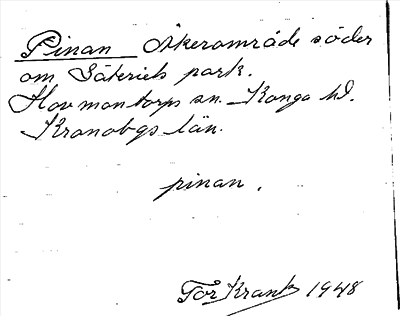 Pinan Åkerområde söder
om Säteriets park.
Hovmantorps sn. Konga hd.
Kronobgs län.
pinan.
Tor Krantz 1948